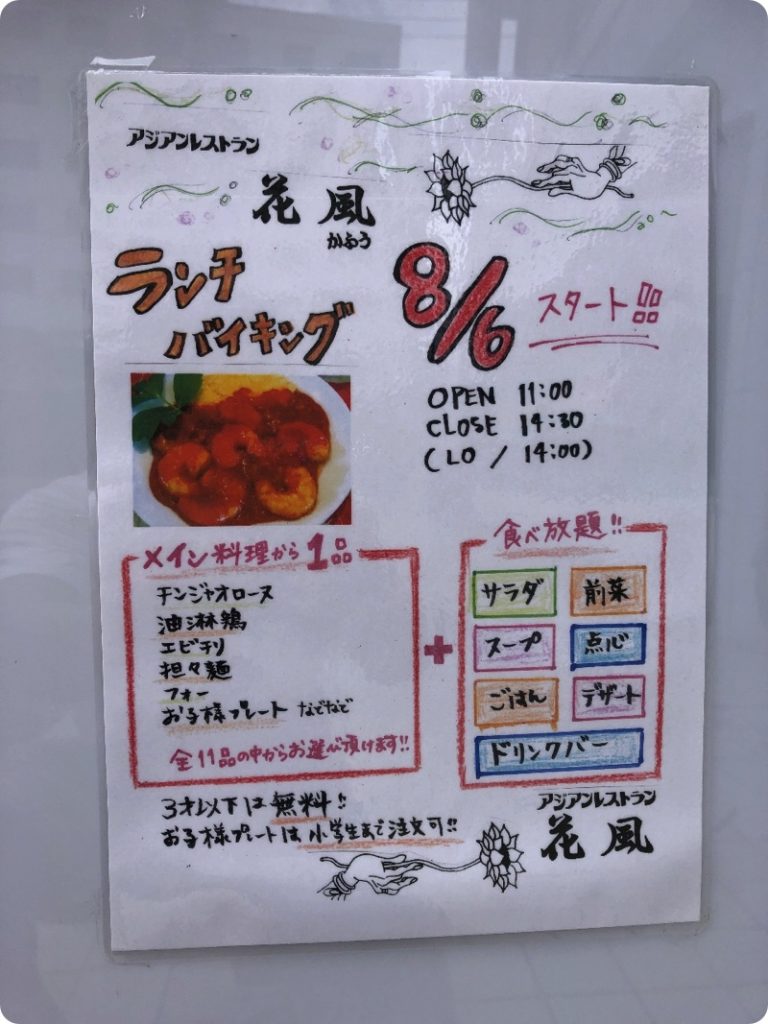 アジアンレストラン
花風
かふう
ランチ
バイキング
8/6 スタート!!!
OPEN 11:00
CLOSE 14:30
(LO / 14:00)
メイン料理から1品
チンジャオロース
油淋鶏
エビチリ
担々麺
フォー
お子様プレート などなど
全11品の中からお選び頂けます!!
+
食べ放題!!
サラダ 前菜
スープ 点心
ごはん デザート
ドリンクバー
3才以下は無料!!
お子様プレートは小学生まで注文可!!
アジアンレストラン
花風